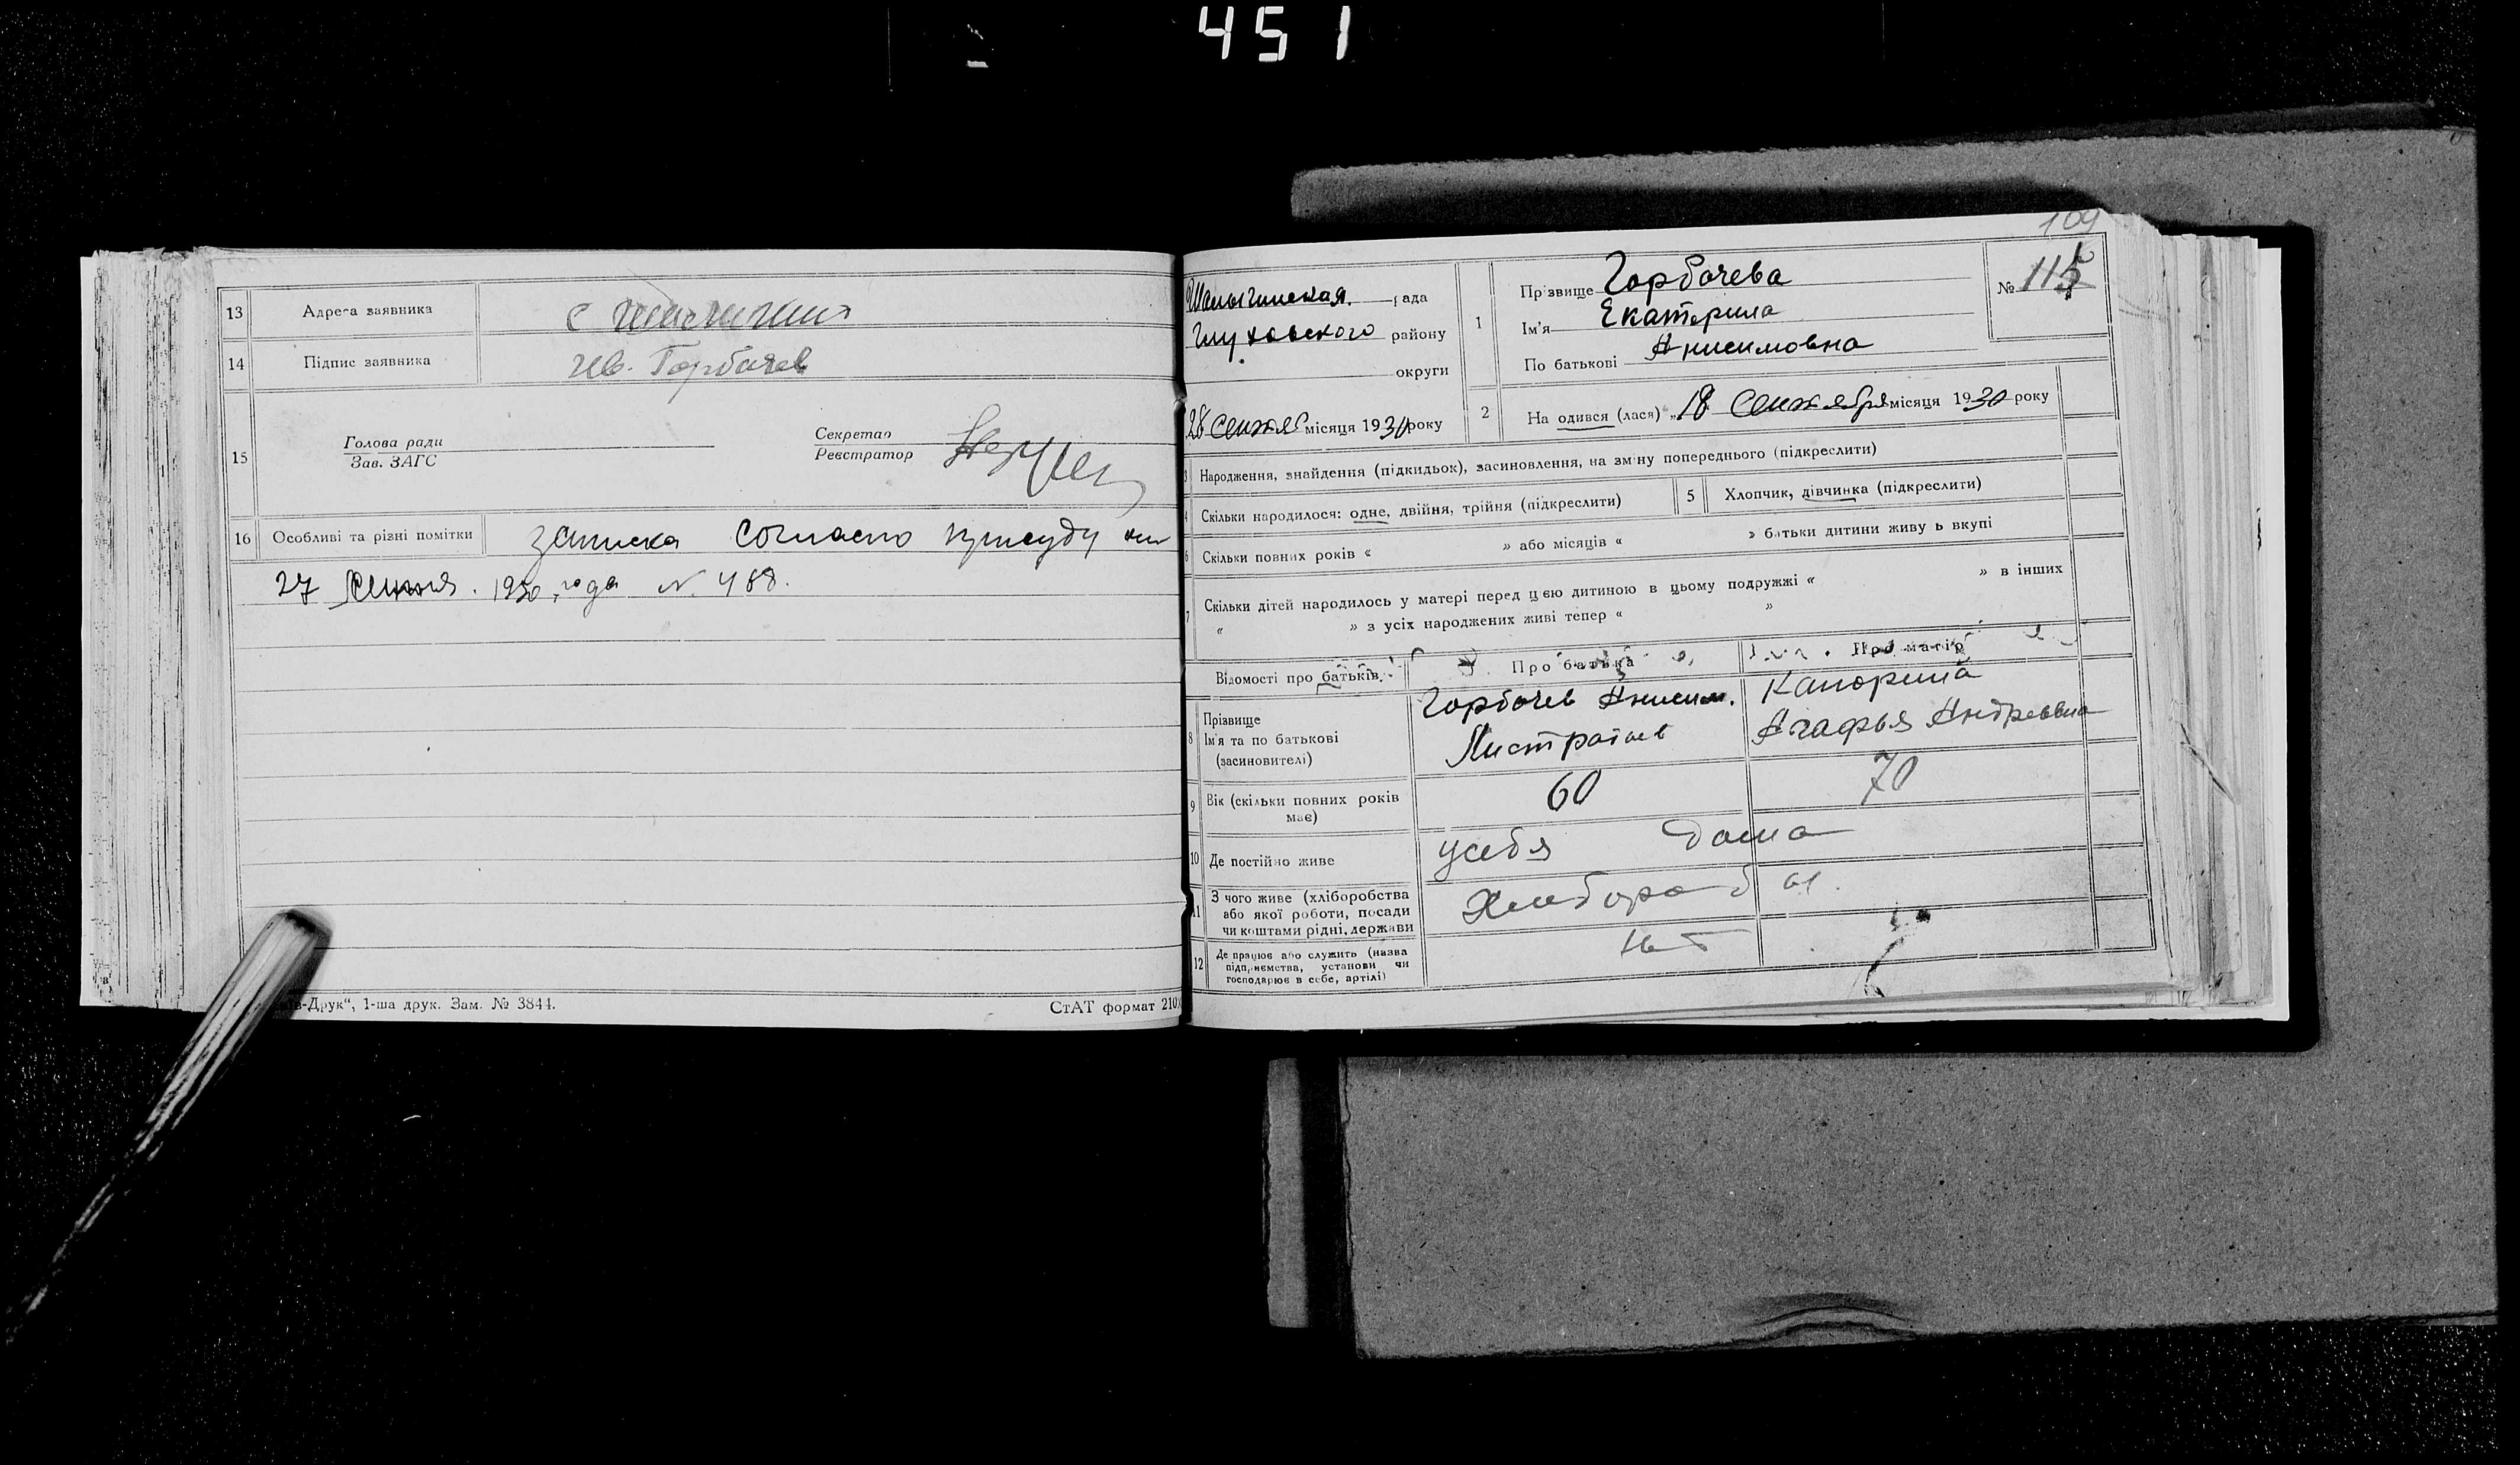 451
13 Адреса заявника с
14 Підпис заявника Ив. Горбачев
15 Голова ради
Зав. ЗАГС
Секретар
Реєстратор
16 Особливі та різні помітки записка согласно присуду
27 1930 года N. 488.
-Друк“, 1-ша друк. Зам. № 3844.
СтАТ формат 210
109
Шалыгинская рада
Глуховского району
округи
28 сентяб місяця 1930 року
1 Прізвище Горбачева
Ім'я Екатерина
По батькові Анисимовна
№ 115
2 Народився (лася) „18 Сентября місяця 1930 року
3 Народження, знайдення (підкидьок), засиновлення, на зміну попереднього (підкреслити)
4 Скільки народилося: одне, двійня, трійня (підкреслити)
5 Хлопчик, дівчинка (підкреслити)
6 Скільки повних років « » або місяців « » батьки дитини живуть вкупі
7 Скільки дітей народилось у матері перед цією дитиною в цьому подружжі « » в інших
« » з усіх народжених живі тепер « »
Відомості про батьків Про батька Про матір
8 Прізвище
Ім'я та по батькові
(засиновителі)
Горбачев Анисим.
Листратиев
Капорина
Агафья Андреевна
9 Вік (скільки повних років має) 60 70
10 Де постійно живе усебя дома
11 З чого живе (хліборобства
або якої роботи, посади
чи коштами рідні, держави
Хлебороб
12 Де працює або служить (назва
підприємства, установи чи
господарює в себе, артілі)
нет